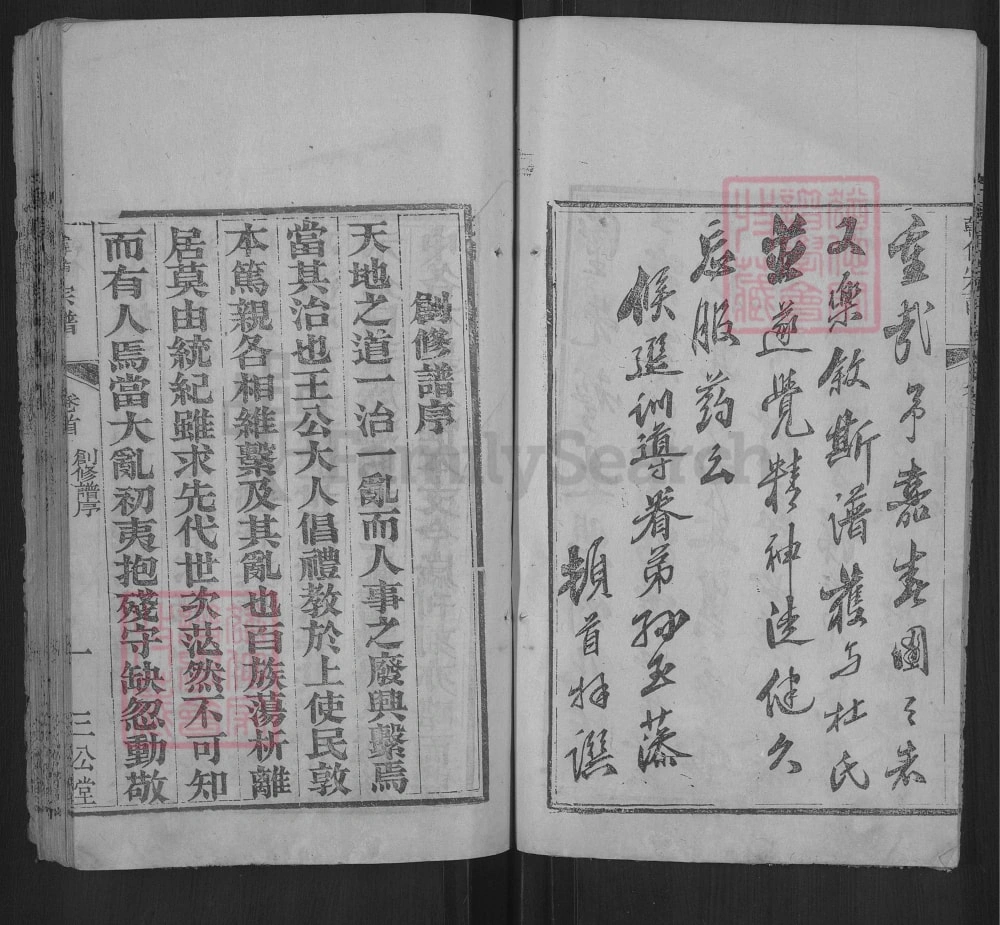 重哉予嘉春圃之表
又樂敘斯譜獲与杜氏
並遂覺精神速健久
辰服药云
候選訓導眷弟孙玉藻
頓首拜譔
創修譜序
天地之道一治一亂而人事之廢興繫焉
當其治也王公大人倡禮教於上使民敦
本篤親各相維繫及其亂也百族蕩析離
居莫由統紀雖求先代世次茫然不可知
而有人焉當大亂初夷抱殘守缺忽動敬
宗譜
卷首
創修譜序
一
三公堂
FamilySearch